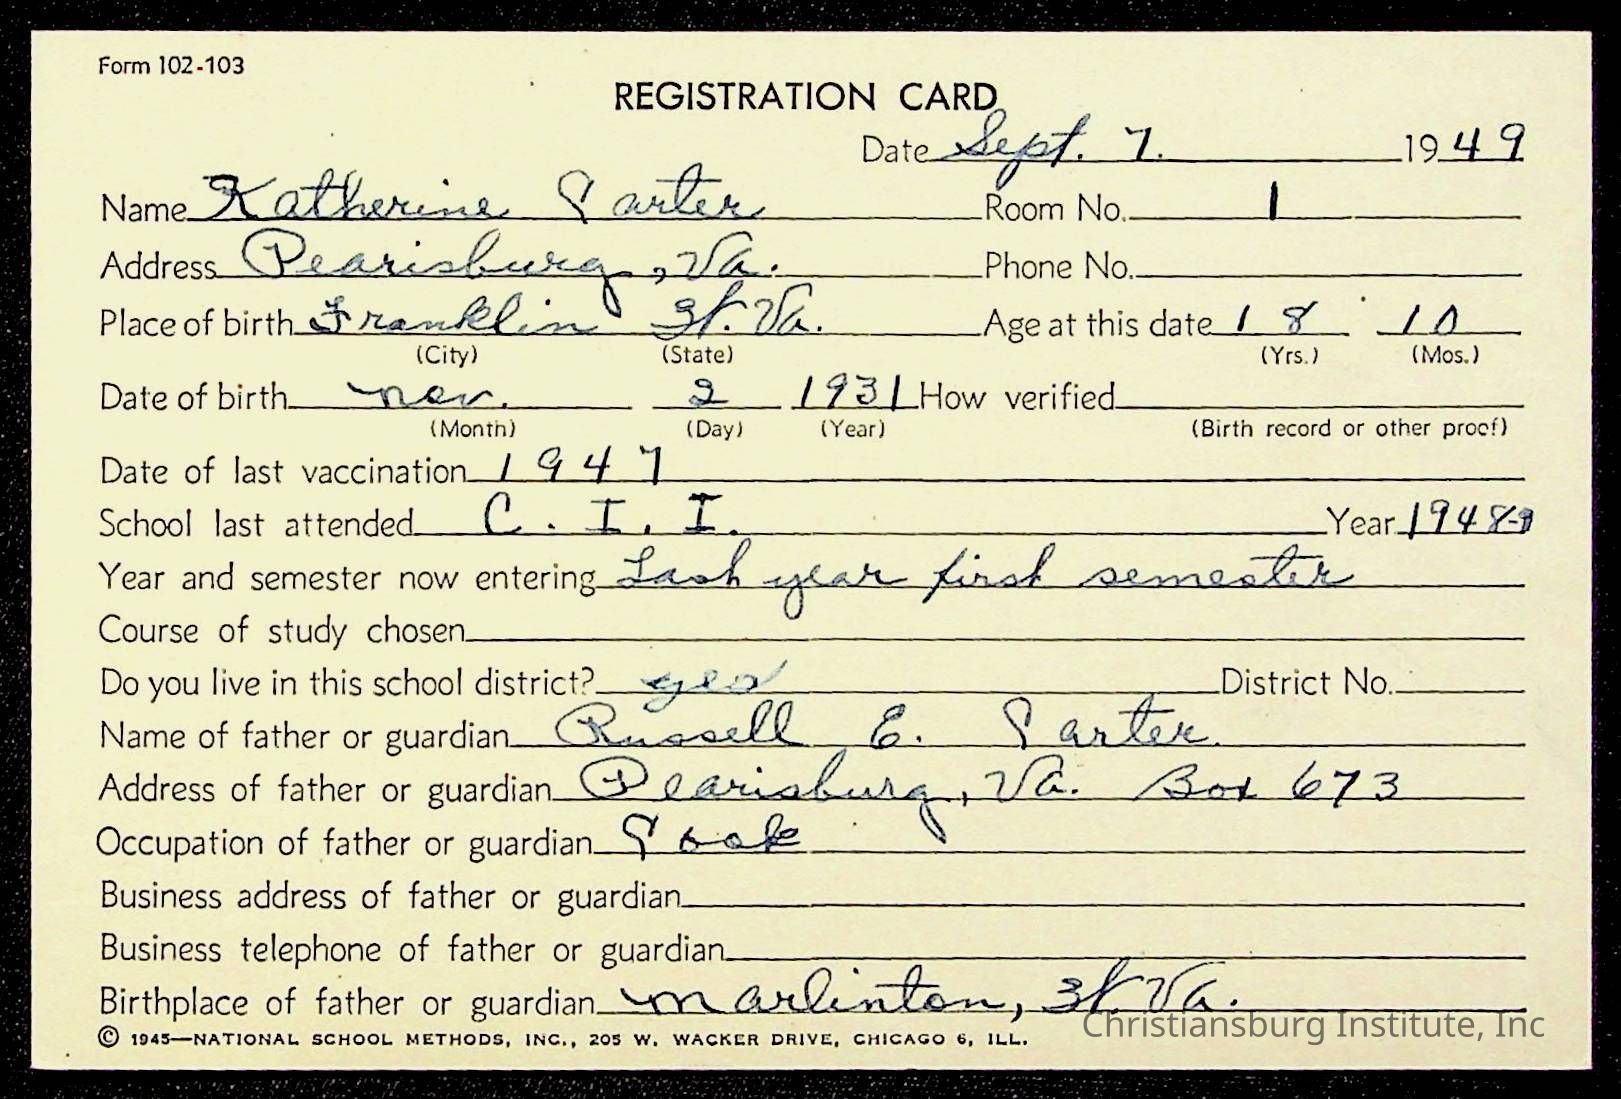 Form 102-103
REGISTRATION CARD
Date Sept. 7. 1949
Name Katherine Carter Room No. 1
Address Pearisburg, Va. Phone No.
Place of birth Franklin W. Va. Age at this date 18 10
(City) (State) (Yrs.) (Mos.)
Date of birth Nov. 2 1931 How verified
(Month) (Day) (Year) (Birth record or other proof)
Date of last vaccination 1947
School last attended C. I. I. Year 1948-9
Year and semester now entering Last year first semester
Course of study chosen
Do you live in this school district? yes District No.
Name of father or guardian Russell E. Carter.
Address of father or guardian Pearisburg, Va. Box 673
Occupation of father or guardian Cook
Business address of father or guardian
Business telephone of father or guardian
Birthplace of father or guardian Marlinton, W. Va.
© 1945—NATIONAL SCHOOL METHODS, INC., 205 W. WACKER DRIVE, CHICAGO 6, ILL.
Christiansburg Institute, Inc